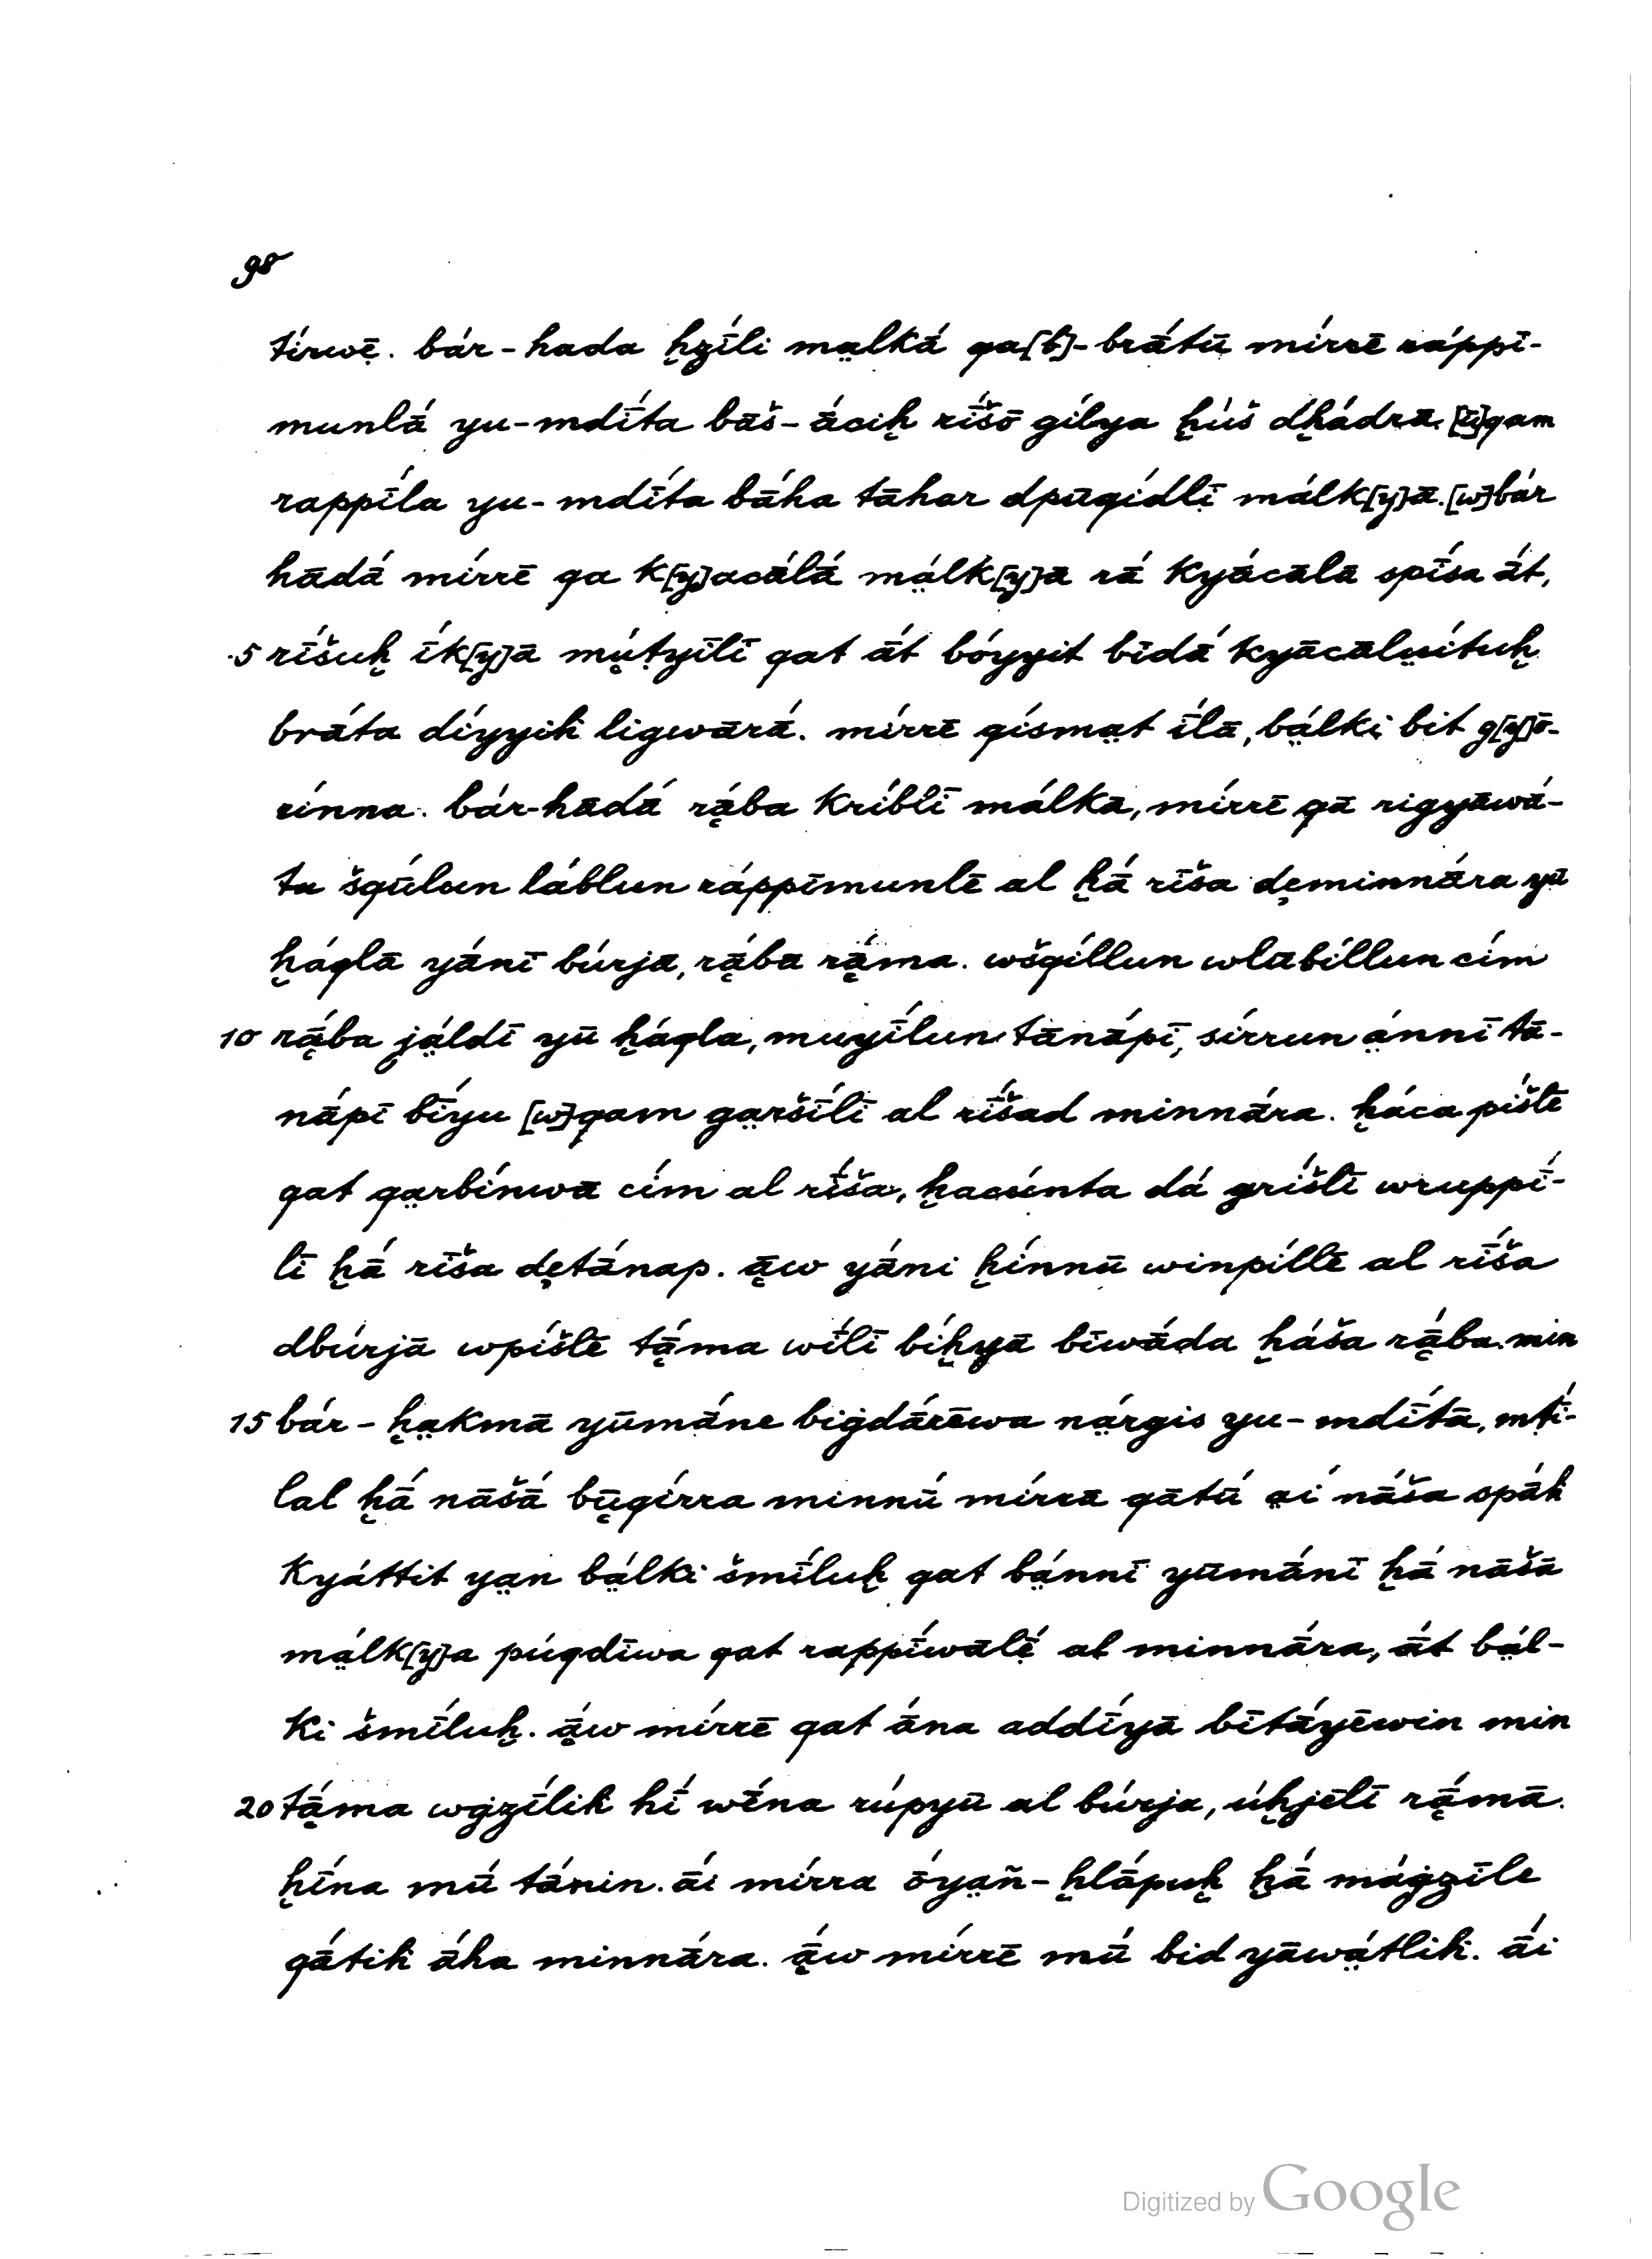 98
tírwē̤. bár-hada ḫzī́li ma̤lkā́ qa[b]-brā́tū mírrē ráppī-
munlā́ yu-mdī́ta bāš-ā́ciḫ rī́šō gílya ḫúš dḫádrā. [ū]qam
rappī́la yu-mdī́ta bā́ha tāhar dpūqídlī málk[y]ā. [w]bár
hādā́ mírrē qa k[y]acālā́ má̤lk[y]ā rā́ kyā́cālā spī́sa ā́t,
5 rī́šuḫ ī́k[y]ā mṳ́tyīlī qat ā́t bóyyit bīdā́ kyācālṳ́ituḫ
brā́ta díyyiḣ ligwārā́. mírrē qísma̤t ī́lā, bá̤lki bit g[y]ō-
rínna. bár-hādā́ rā̤́ba kríblī málkā, mírrē qā rigyāwā́-
tu šqū́lun láblun ráppīmunlē al ḫā́ rīša de̤minnā́ra yū
ḫáqlā yā́nī búrja, rā̤́ba rā̤́ma. wšqíllun wlābíllun cím
10 rā̤́ba já̤ldī yū ḫáqla, muyī́lun tānā́pī, sírrun á̤nnī tā-
nā́pī bī́yu [w]qam ga̤ršī́lī al rī́šad minnā́ra. ḫáca píšlē
qat qa̤rbínwā cím al rī́ša, ḫacúnta dā́ gríšlī wruppī́-
lī ḫā́ rīša de̤tā́nap. ā̤w yā́ni ḫínnū winpíllē al rī́ša
dbúrjā wpíšlē tā̤́ma wī́lī bíḫyā bīwā́da ḫášа rā̤́ba. min
15 bár-ḫa̤kmā yūmā́ne biġdā́rēwa ná̤rgis yu-mdī́tā, mṭī́-
lal ḫā́ nāšā́ bṳ̄qírra minnū́ mírrā qātū́ a̤í nā́ša spā́h
kyáttit ya̤n bá̤lki šmī́luḫ qat bá̤nnī yūmā́nī ḫā́ nāšā
má̤lk[y]a púqdīwa qat rappī́wālḗ al minnā́ra, ā́t bá̤l-
ki šmī́luḫ. ā̤́w mírrē qat ā́na addī́yā bītā́yēwin min
20 tā̤́ma wġzī́liḣ hī́ wḗna rúpyū al búrja, úḫjēlī rā̤́mā.
ḫī́na mū́ tā́nin. ā́i mírra ṓya̤ñ-ḫlā́puḫ ḫā́ máġzīle
qā́tiḣ ā́ha minnā́ra. ā̤́w mírrē mū́ bid yāwá̤tliḣ. ā́i
Digitized by Google